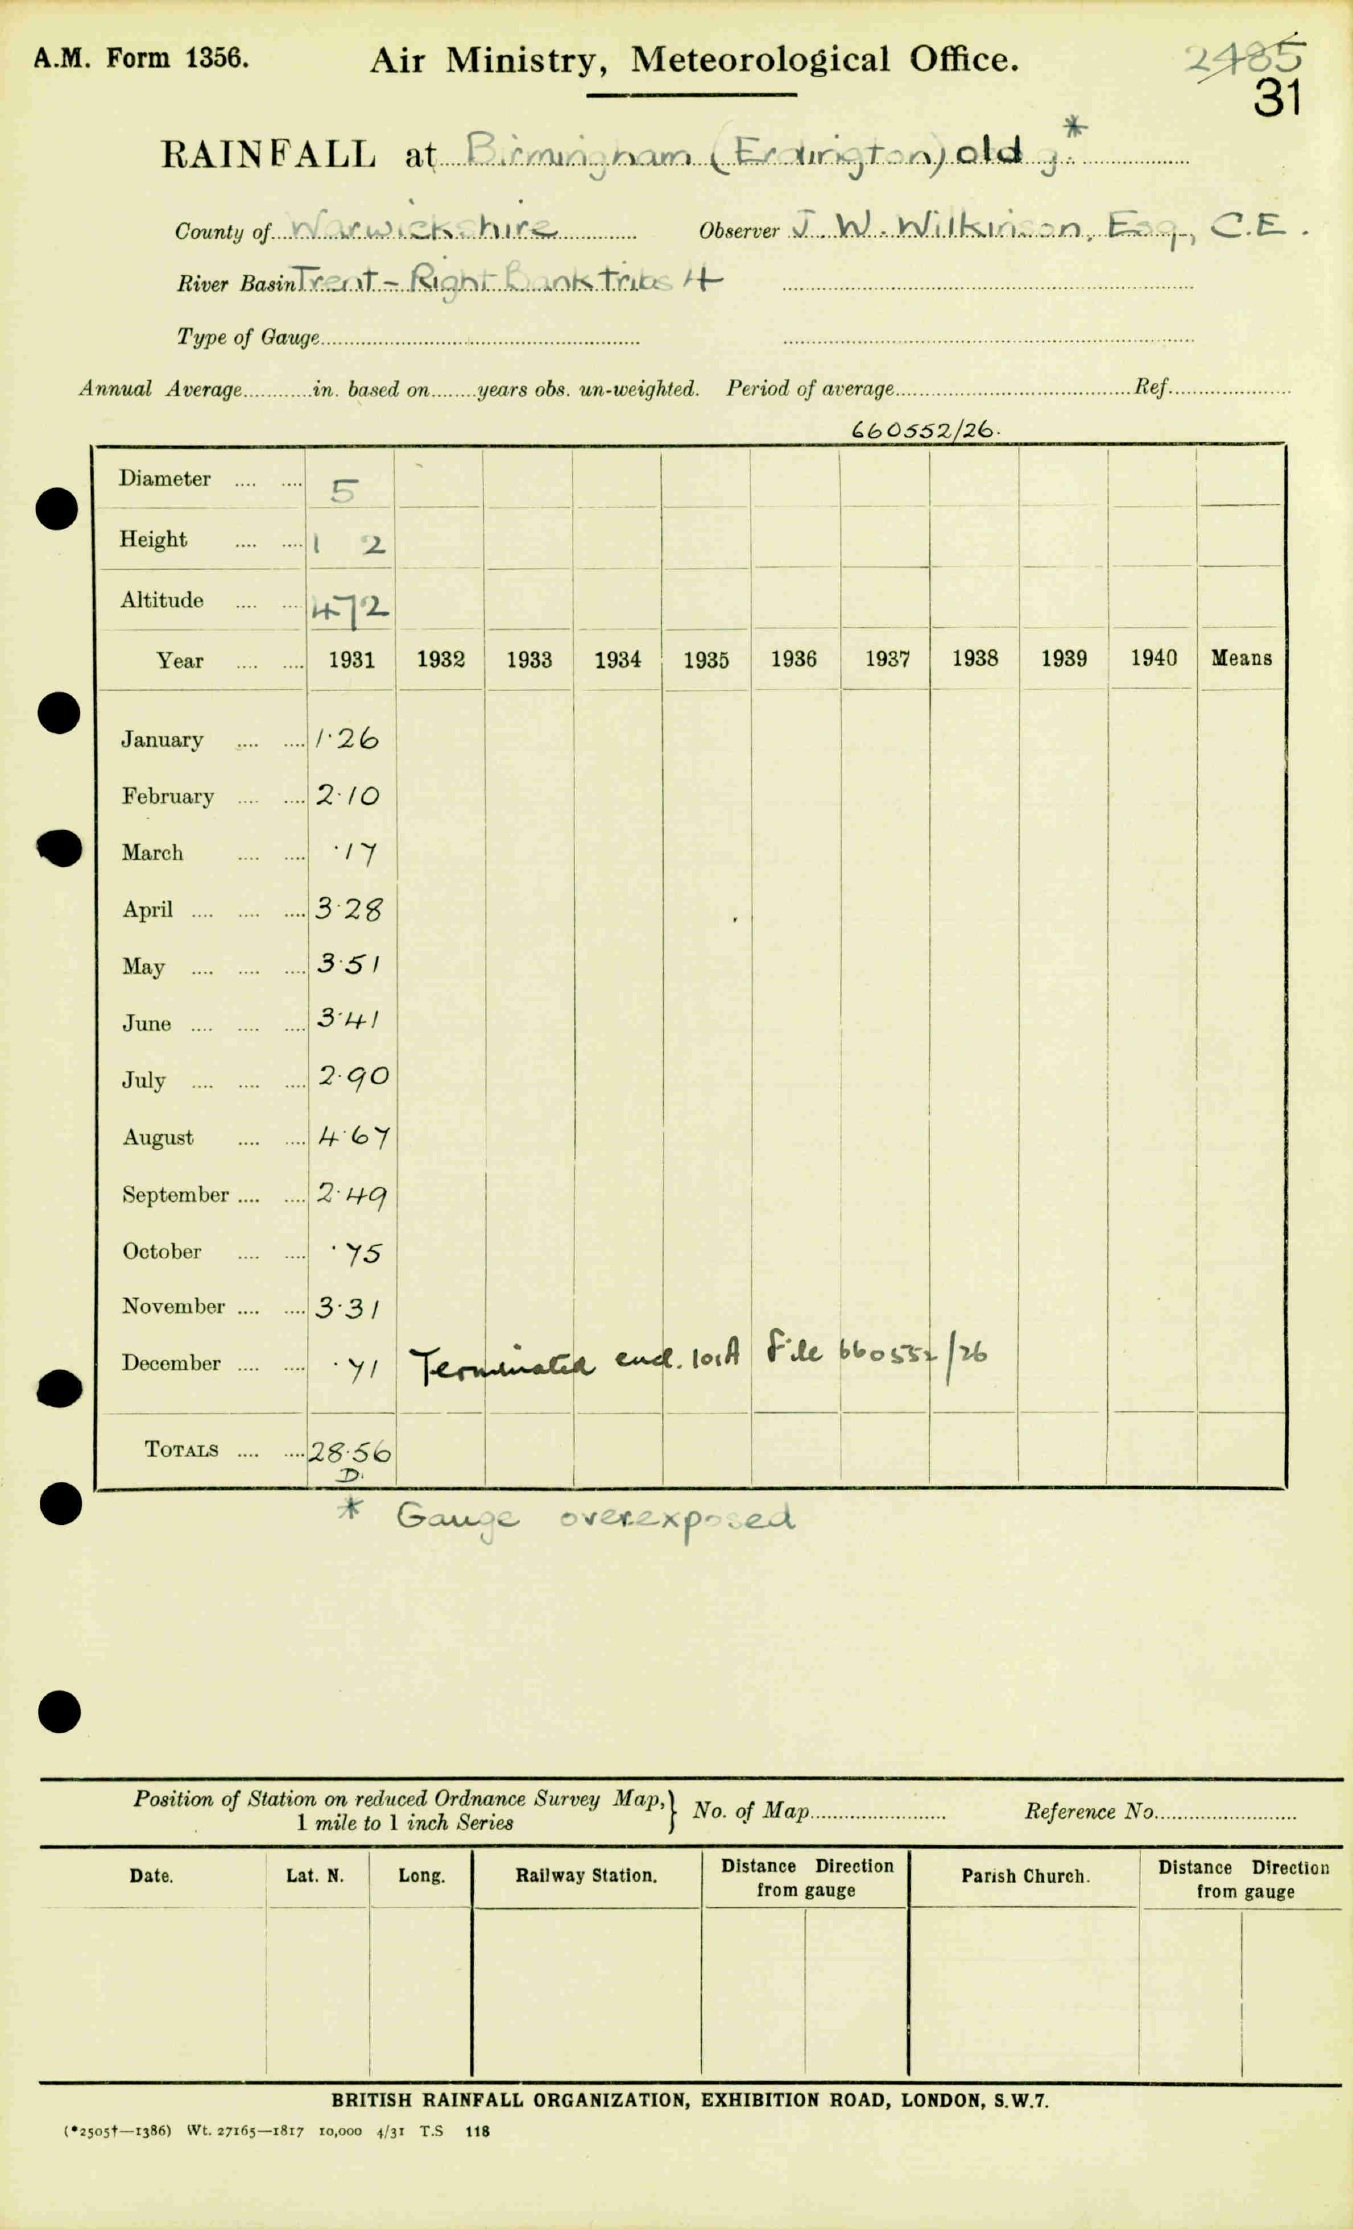 A.M. Form 1356. Air Ministry, Meteorological Office. 2485
31
RAINFALL at Birmingham (Erdington) old g. *
County of Warwickshire Observer J. W. Wilkinson, Esq., C.E.
River Basin Trent - Right Bank tribs 4
Type of Gauge
Annual Average in. based on years obs. un-weighted. Period of average Ref.
660552/26.
Diameter 5
Height 1 2
Altitude 472
Year 1931 1932 1933 1934 1935 1936 1937 1938 1939 1940 Means
January 1·26
February 2·10
March ·17
April 3·28
May 3·51
June 3·41
July 2·90
August 4·67
September 2·49
October ·75
November 3·31
December ·71 Terminated encl. 101A File 660552/26
TOTALS 28·56
D.
* Gauge overexposed
Position of Station on reduced Ordnance Survey Map, } No. of Map Reference No.
1 mile to 1 inch Series
Date. Lat. N. Long. Railway Station. Distance Direction Parish Church. Distance Direction
from gauge from gauge
BRITISH RAINFALL ORGANIZATION, EXHIBITION ROAD, LONDON, S.W.7.
(*2505†—1386) Wt. 27165—1817 10,000 4/31 T.S 118